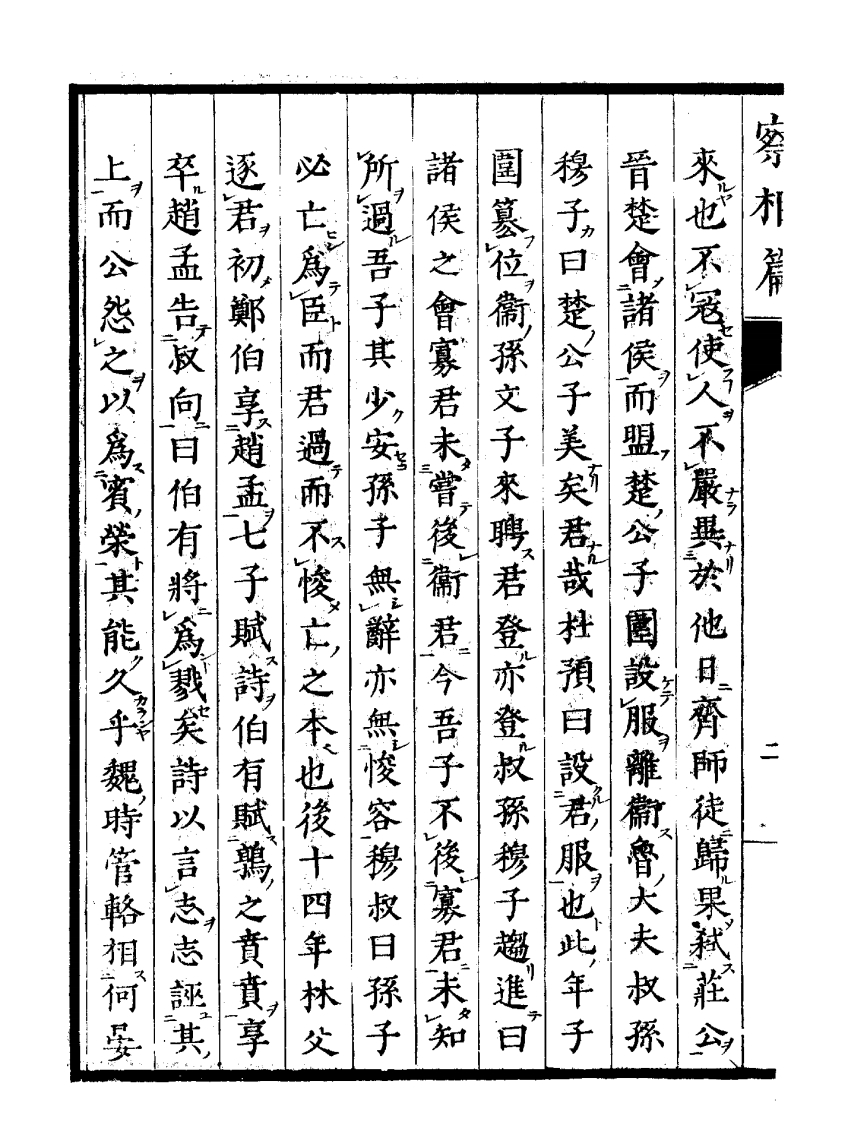 察相篇
二
來也不寇使人不嚴異於他日齊師徒歸果弑莊公
晉楚會諸侯而盟楚公子圍設服離衞魯大夫叔孫
穆子曰楚公子美矣君哉杜預曰設君服也此年子
圍簒位衞孫文子來聘君登亦登叔孫穆子趨進曰
諸侯之會寡君未嘗後衞君今吾子不後寡君未知
所過吾子其少安孫子無辭亦無悛容穆叔曰孫子
必亡爲臣而君過而不悛亡之本也後十四年林父
逐君初鄭伯享趙孟七子賦詩伯有賦鶉之賁賁享
卒趙孟告叔向曰伯有將爲戮矣詩以言志志誣其
上而公怨之以爲賓榮其能久乎魏時管輅相何晏